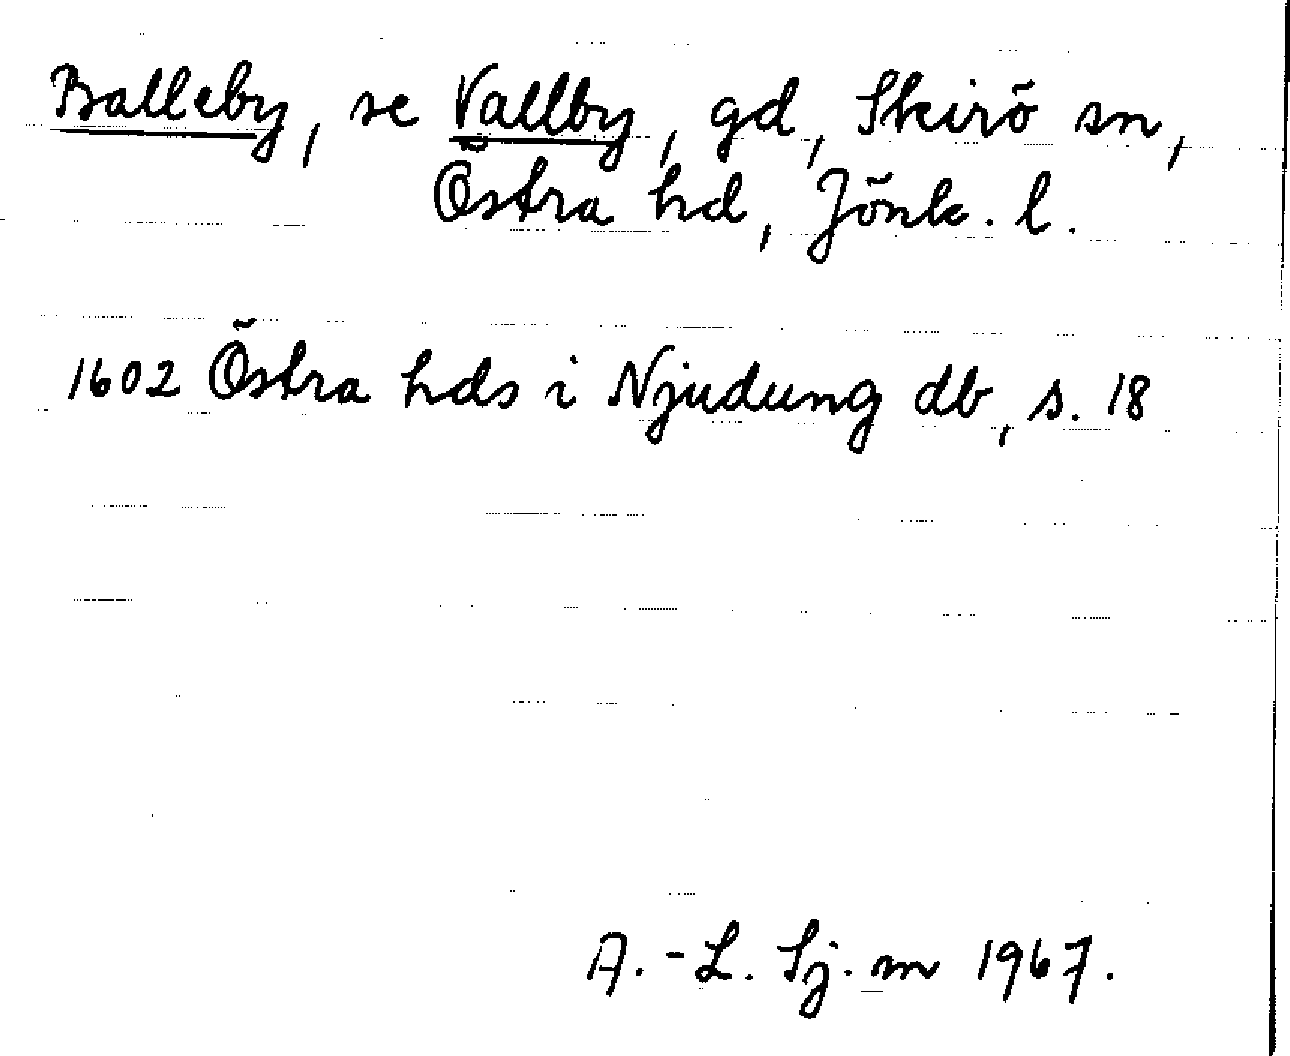 Balleby, se Vallby, gd, Skirö sn,
Östra hd, Jönk. l.
1602 Östra hds i Njudung db, s. 18
A.-L. Sj. m 1967.